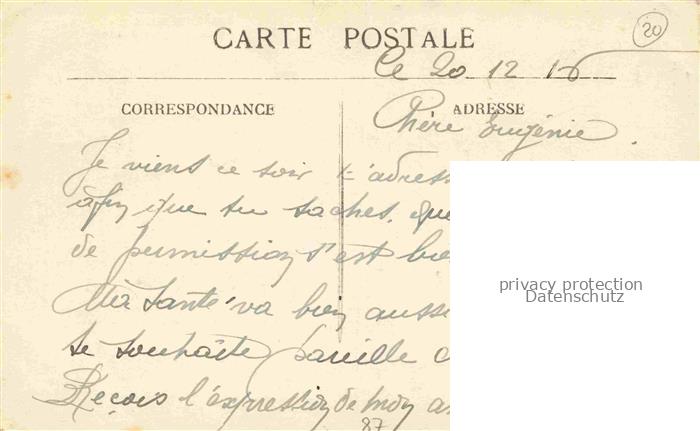 20
CARTE POSTALE
Le 20 12 16
CORRESPONDANCE
ADRESSE
Chère Eugénie
Je viens ce soir t'adress
afin que tu saches que
de permission s'est bie
Ma santé va bien aussi
te souhaite pareille
Reçois l'expression de mon
87
privacy protection
Datenschutz